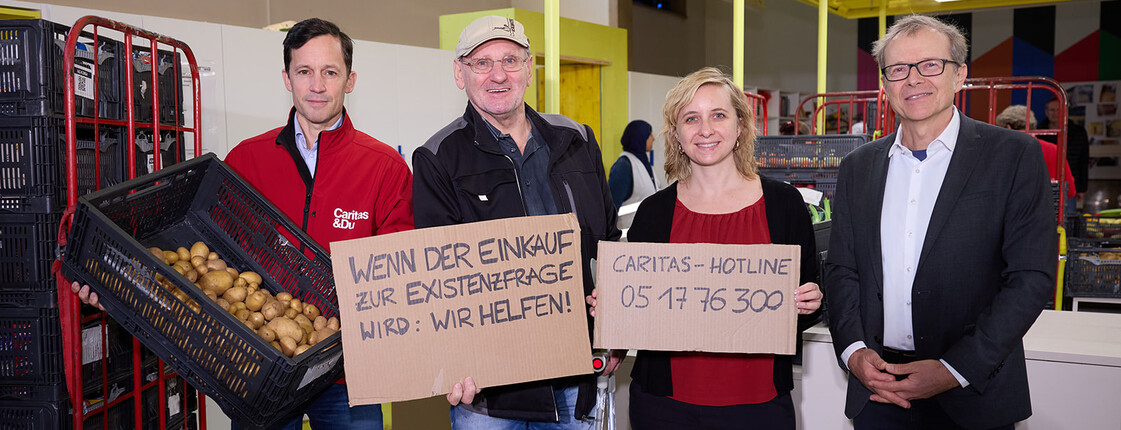 Caritas
&Du
WENN DER EINKAUF
ZUR EXISTENZFRAGE
WIRD: WIR HELFEN!
CARITAS-HOTLINE
05 17 76 300